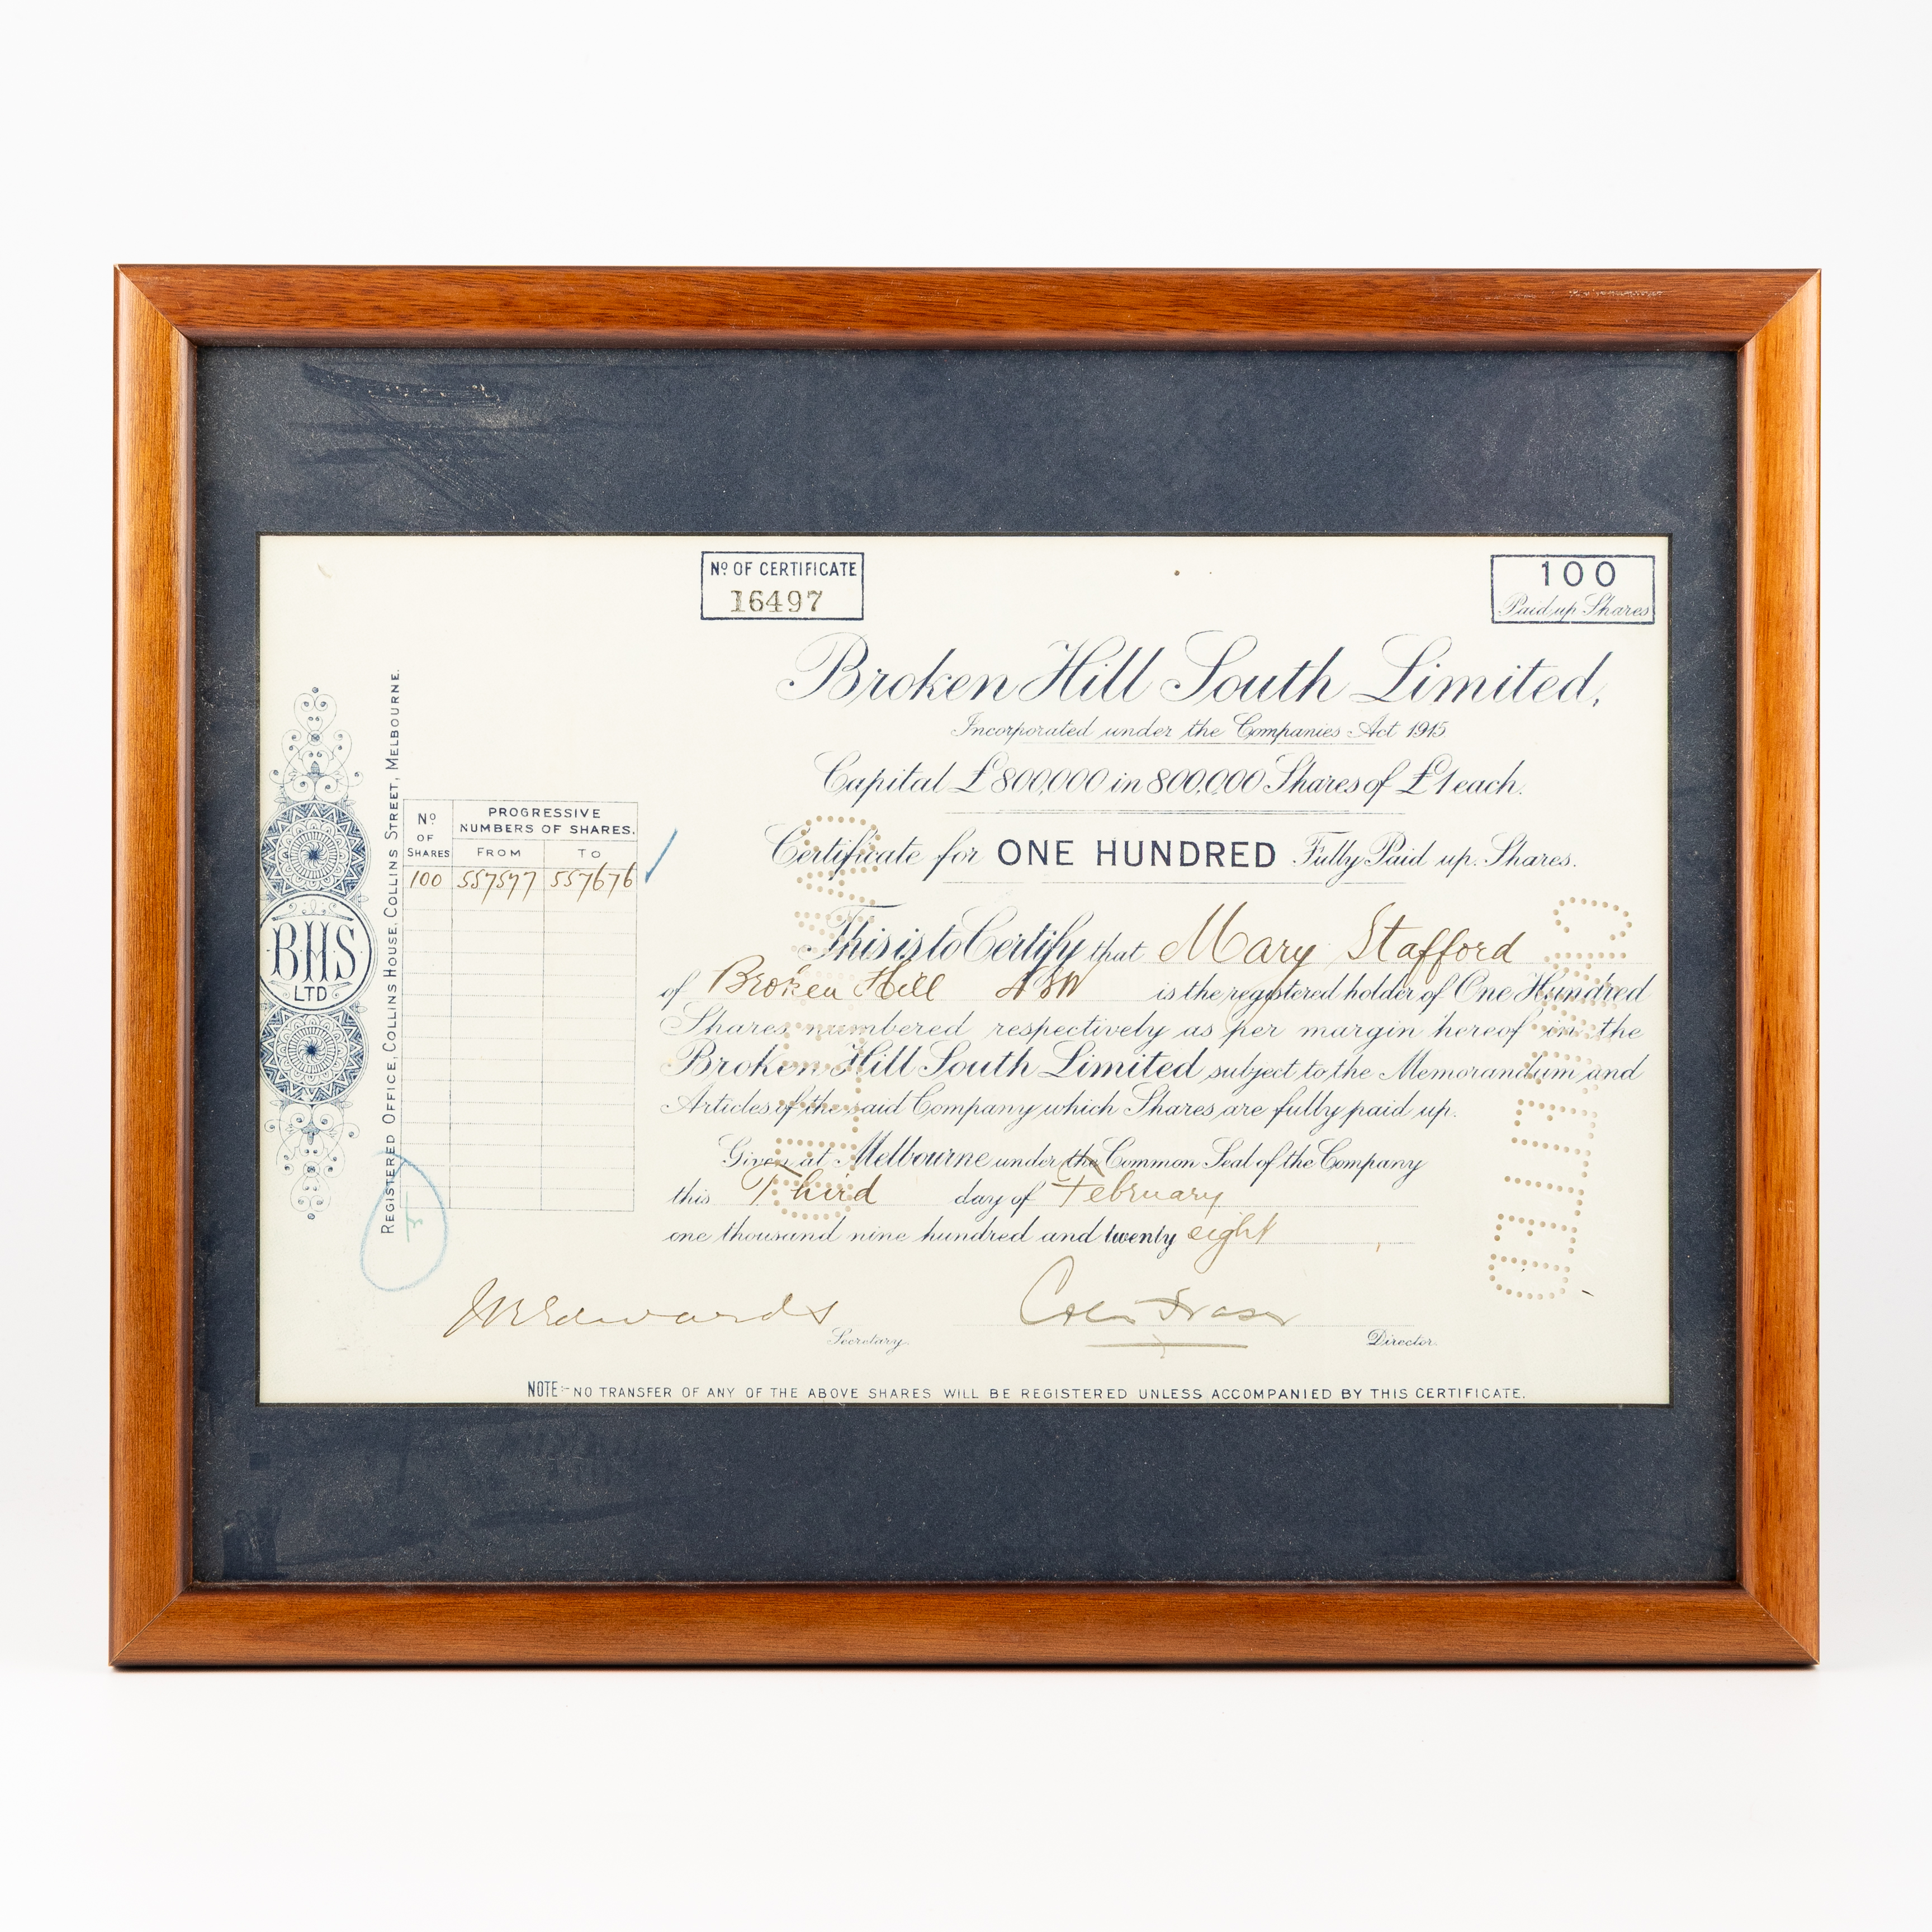 Nº OF CERTIFICATE
16497
100
Paid up Shares
Broken Hill South Limited,
Incorporated under the Companies Act 1915
Capital £800,000 in 800,000 Shares of £1 each.
Certificate for ONE HUNDRED Fully Paid up Shares.
This is to Certify that Mary Stafford
of Broken Hill NSW is the registered holder of One Hundred
Shares numbered respectively as per margin hereof in the
Broken Hill South Limited subject to the Memorandum and
Articles of the said Company which Shares are fully paid up.
Given at Melbourne under the Common Seal of the Company
this Third day of February
one thousand nine hundred and twenty eight
Secretary.
Director.
NOTE:- NO TRANSFER OF ANY OF THE ABOVE SHARES WILL BE REGISTERED UNLESS ACCOMPANIED BY THIS CERTIFICATE.
REGISTERED OFFICE, COLLINS HOUSE, COLLINS STREET, MELBOURNE.
BHS
LTD
Nº OF SHARES
PROGRESSIVE
NUMBERS OF SHARES.
FROM TO
100 557577 557676
CANCELLED
CANCELLED
Edwards
Colin Fraser